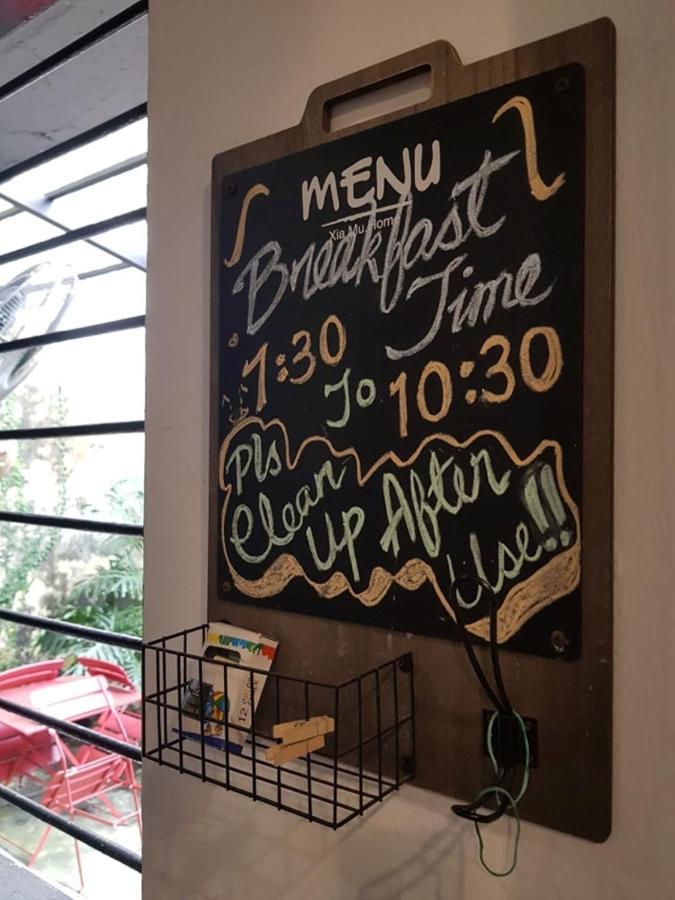 MENU
Xia Mu Home
Breakfast
Time
7:30
To 10:30
Pls
Clean
Up After
Use!!